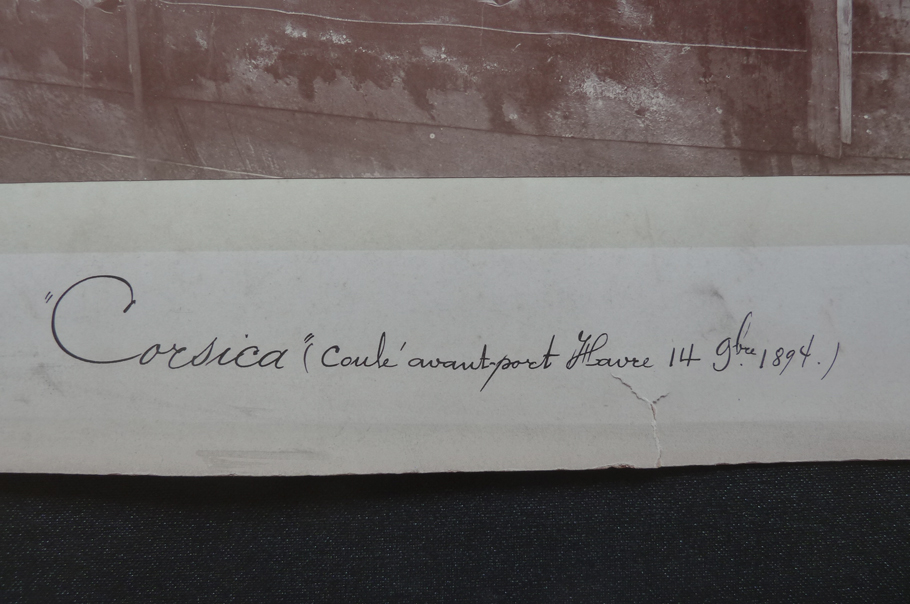 "Corsica" (Coulé avant-port Havre 14 9bre. 1894.)